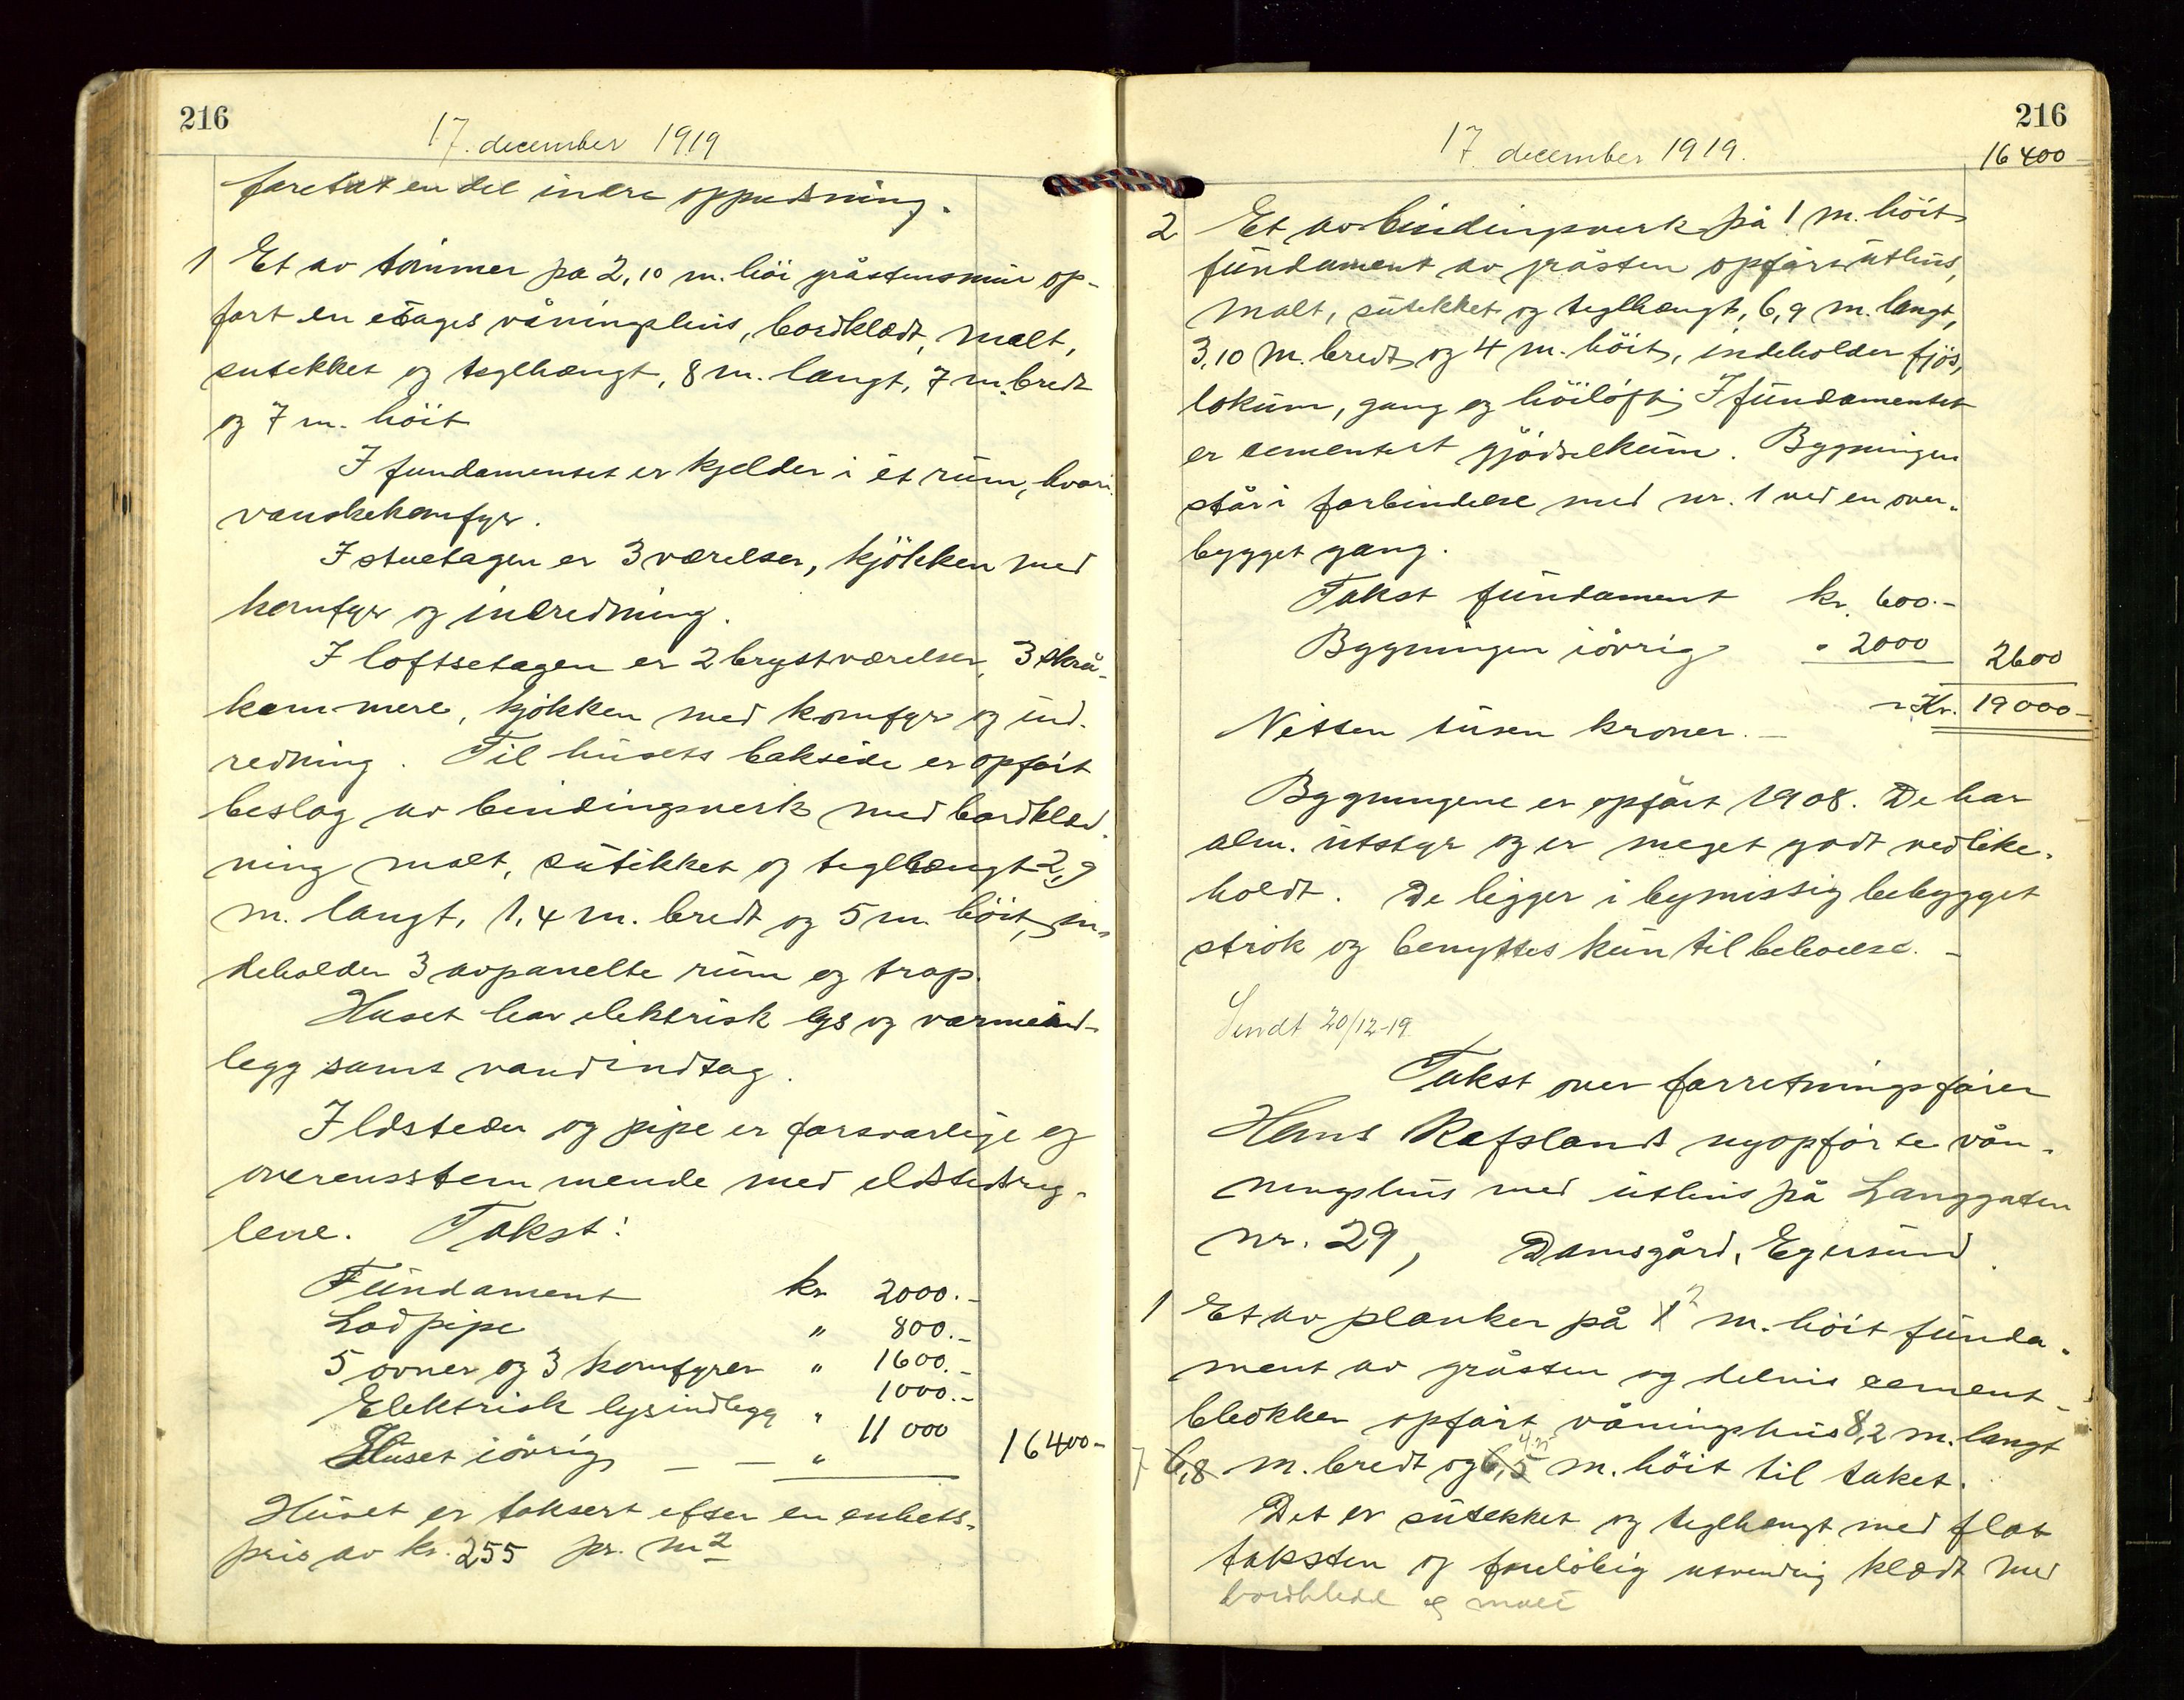 216
17. december 1919
foretat en del indre oppudsning.
1 Et av tömmer på 2,10 m. höi gråstensmur op-
fört en etages våningshus, bordklædt, malt,
sutekket og teglhængt, 8 m. langt, 7 m. bredt
og 7 m. höit
I fundamentet er kjelder i et rum, hvori
vaskekomfyr.
I stuetagen er 3 værelser, kjökken med
komfyr og indredning.
I loftsetagen er 2 brystværelser, 3 skrå-
kammere, kjökken med komfyr og ind-
redning. Til husets bakside er opfört
beslag av bindingsverk med bordklæd-
ning malt, sutekket og teglhængt 2,9
m. langt, 1,4 m. bredt og 5 m. höit, in-
deholder 3 avpanelte rum og trap.
Huset har elektrisk lys og varmeind-
legg samt vandindtag.
Ildsteder og pipe er forsvarlige og
overensstemmende med ildstedsreg-
lene. Takst:
Fundament kr 2000.-
Lodpipe " 800.-
5 ovner og 3 komfyrer " 1600.-
Elektrisk lysindlegg " 1000.-
Huset iövrig — — " 11 000 16400-
Huset er taksert efter en enhets-
pris av kr. 255 pr. m2
216
17. december 1919.
16 400
2 Et av bindingsverk på 1 m. höit
fundament av gråsten opfört uthus,
malt, sutekket og teglhængt, 6,9 m. langt,
3,10 m. bredt og 4 m. höit, indeholder fjös,
lokum, gang og höiloft; I fundamentet
er cementert gjödselkum. Bygningen
står i forbindelse med nr. 1 ved en over-
bygget gang.
Takst fundament kr. 600.-
Bygningen iövrig " 2000 2600
Kr. 19 000-
Nitten tusen kroner. -
Bygningene er opfört 1908. De har
alm. utstyr og er meget godt vedlike-
holdt. De ligger i bymæssig bebygget
strök og benyttes kun til beboelse. -
Sendt 20/12-19
Takst over forretningsförer
Hans Refslands nyopförte vån-
ningshus med uthus på Langgaten
nr. 29, Damsgård, Egersund.
1 Et av planker på 1 2 m. höit funda-
ment av gråsten og delvis cement-
blokker opfört våningshus 8,2 m. langt
7 6,8 m. bredt og 6,5 m. höit til taket.
Det er sutekket og teglhængt med flat
taksten og foreløbig utvendig klædt med
bordkledd og malt